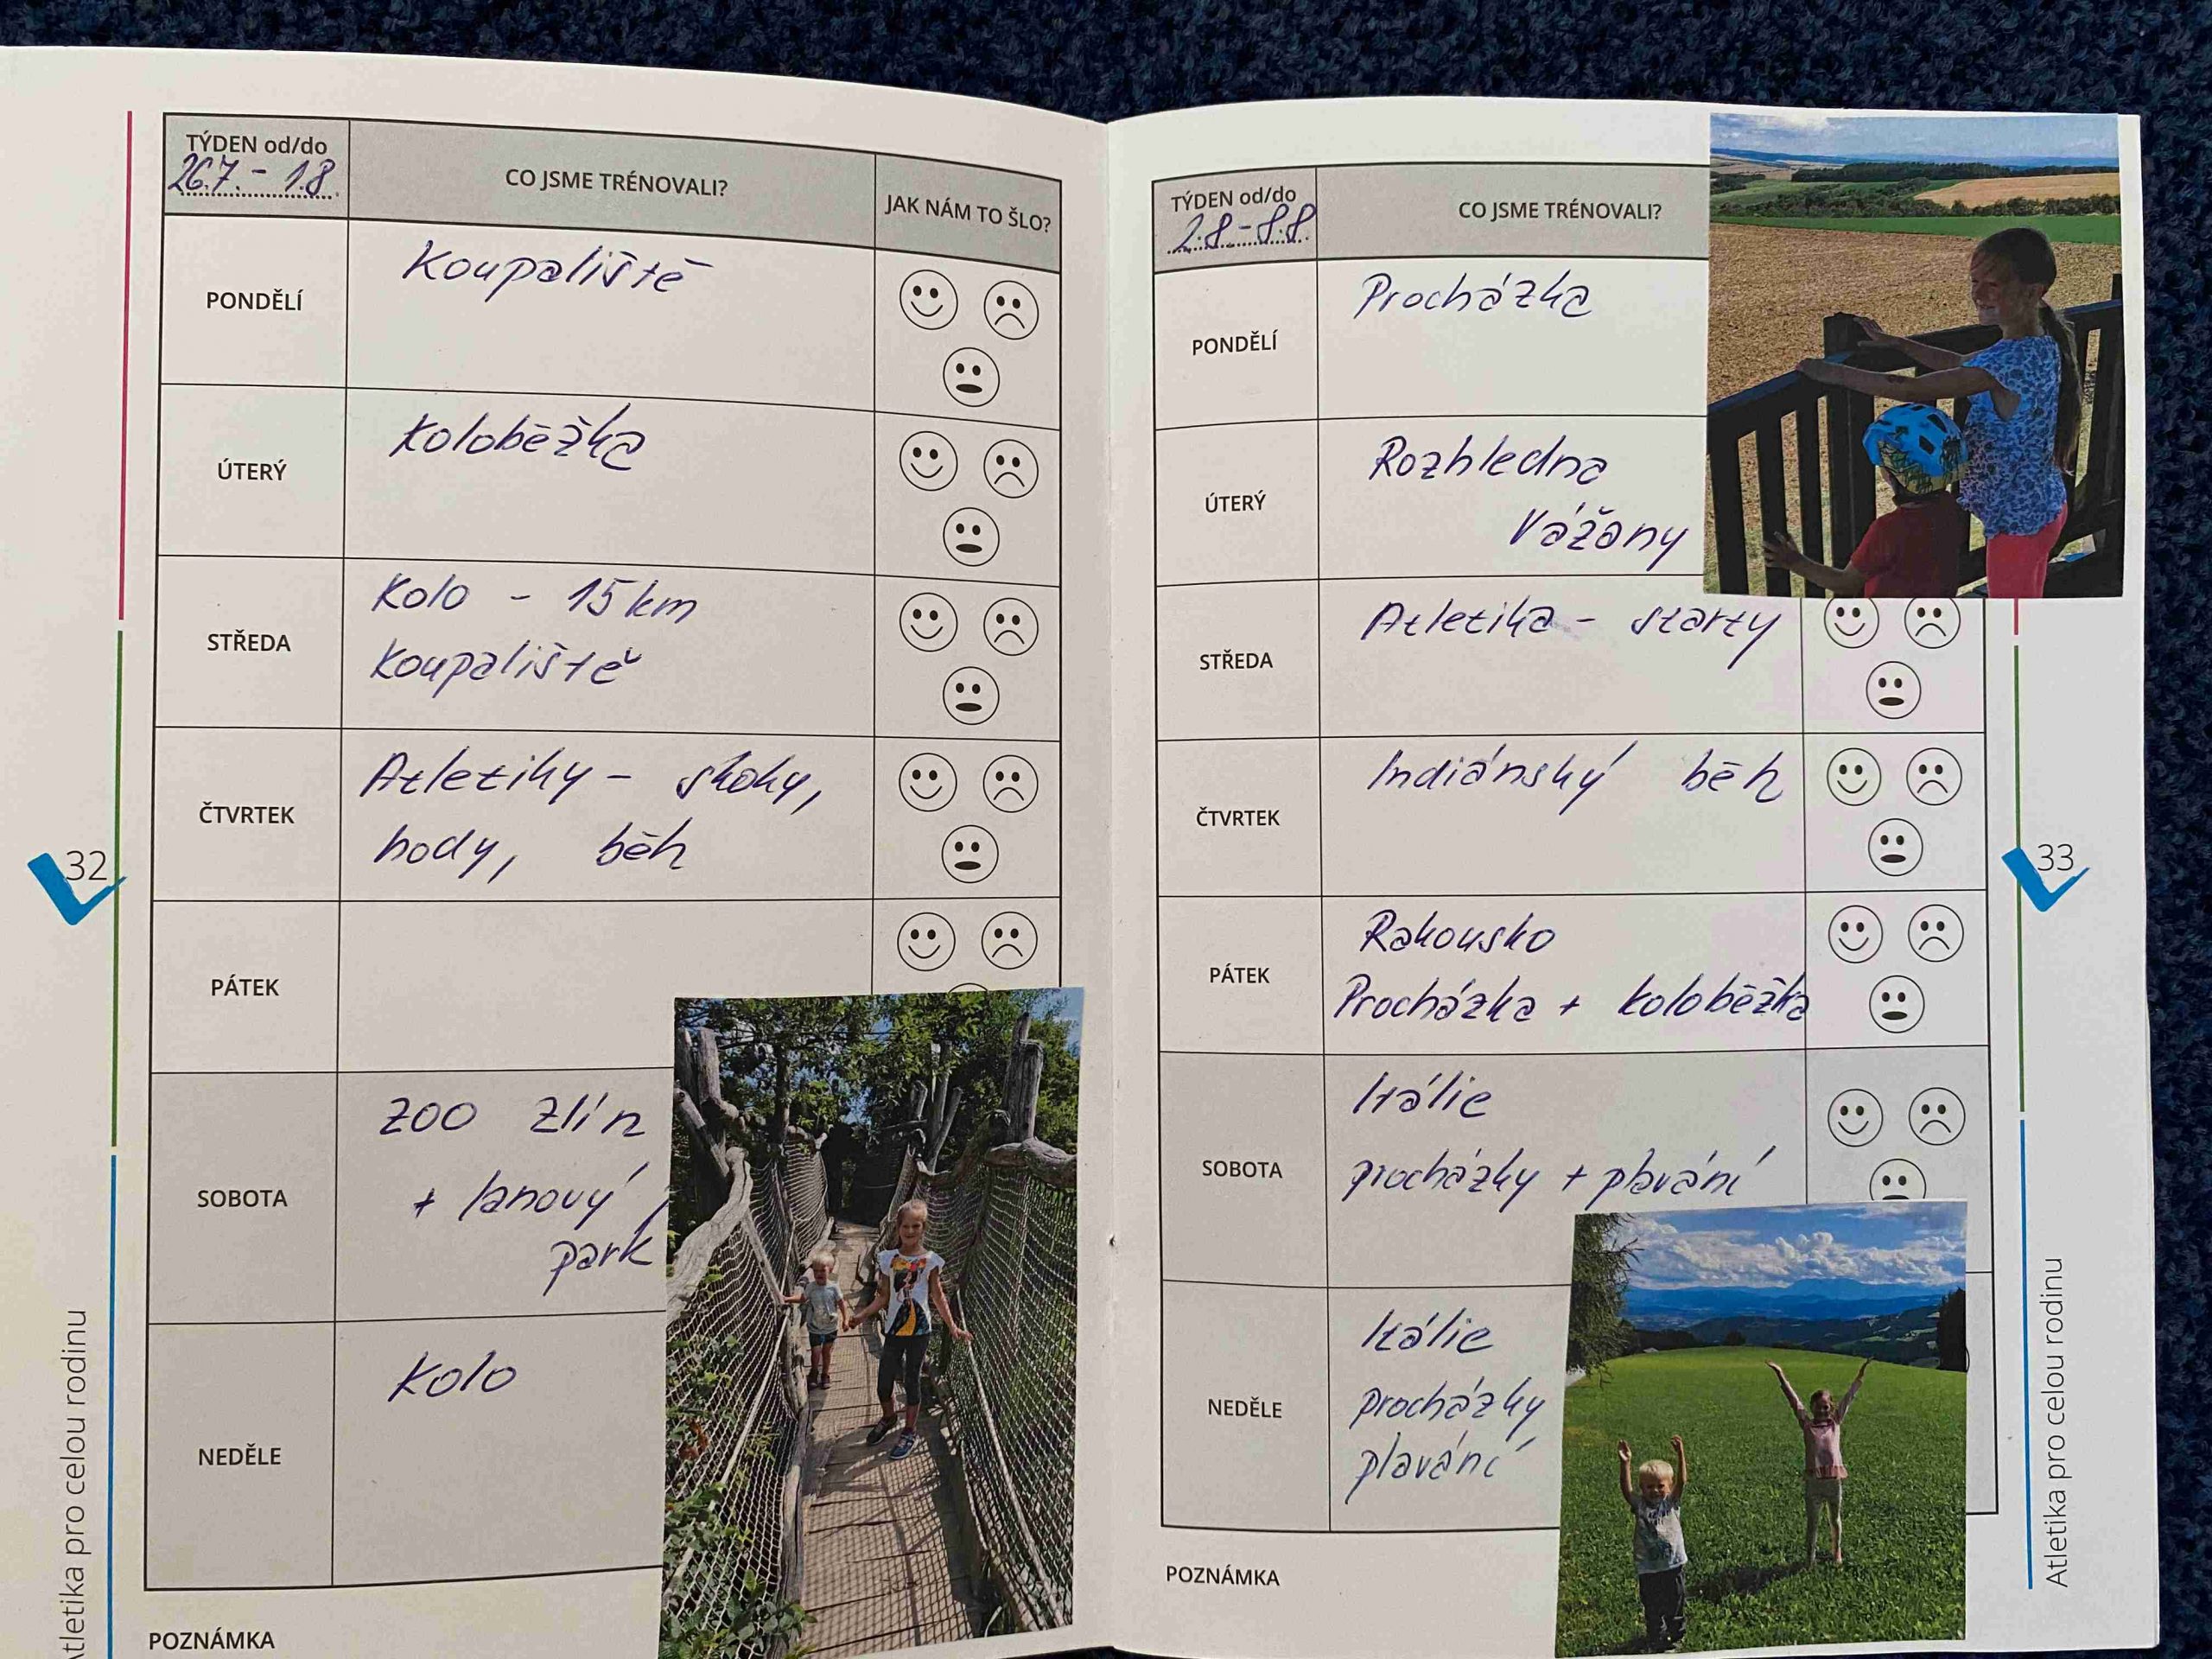 TÝDEN od/do
26.7. - 1.8.
CO JSME TRÉNOVALI?
JAK NÁM TO ŠLO?
PONDĚLÍ
Koupaliště
ÚTERÝ
Koloběžka
STŘEDA
Kolo - 15 km
Koupaliště
ČTVRTEK
Atletiky - skoky,
hody, běh
PÁTEK
SOBOTA
ZOO Zlín
+ lanový
park
NEDĚLE
Kolo
POZNÁMKA
32
Atletika pro celou rodinu
TÝDEN od/do
2.8 - 8.8
CO JSME TRÉNOVALI?
PONDĚLÍ
Procházka
ÚTERÝ
Rozhledna
Vážany
STŘEDA
Atletika - starty
ČTVRTEK
Indiánský běh
PÁTEK
Rakousko
Procházka + koloběžka
SOBOTA
Itálie
procházky + plavání
NEDĚLE
Itálie
procházky
plavání
POZNÁMKA
33
Atletika pro celou rodinu